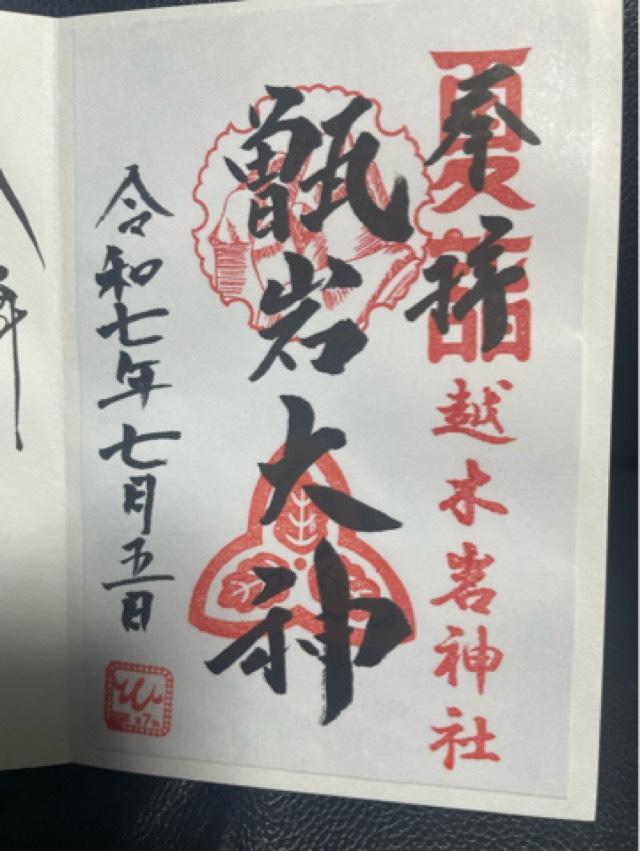 奉拝
夏詣
越木岩神社
甑岩大神
令和七年七月五日